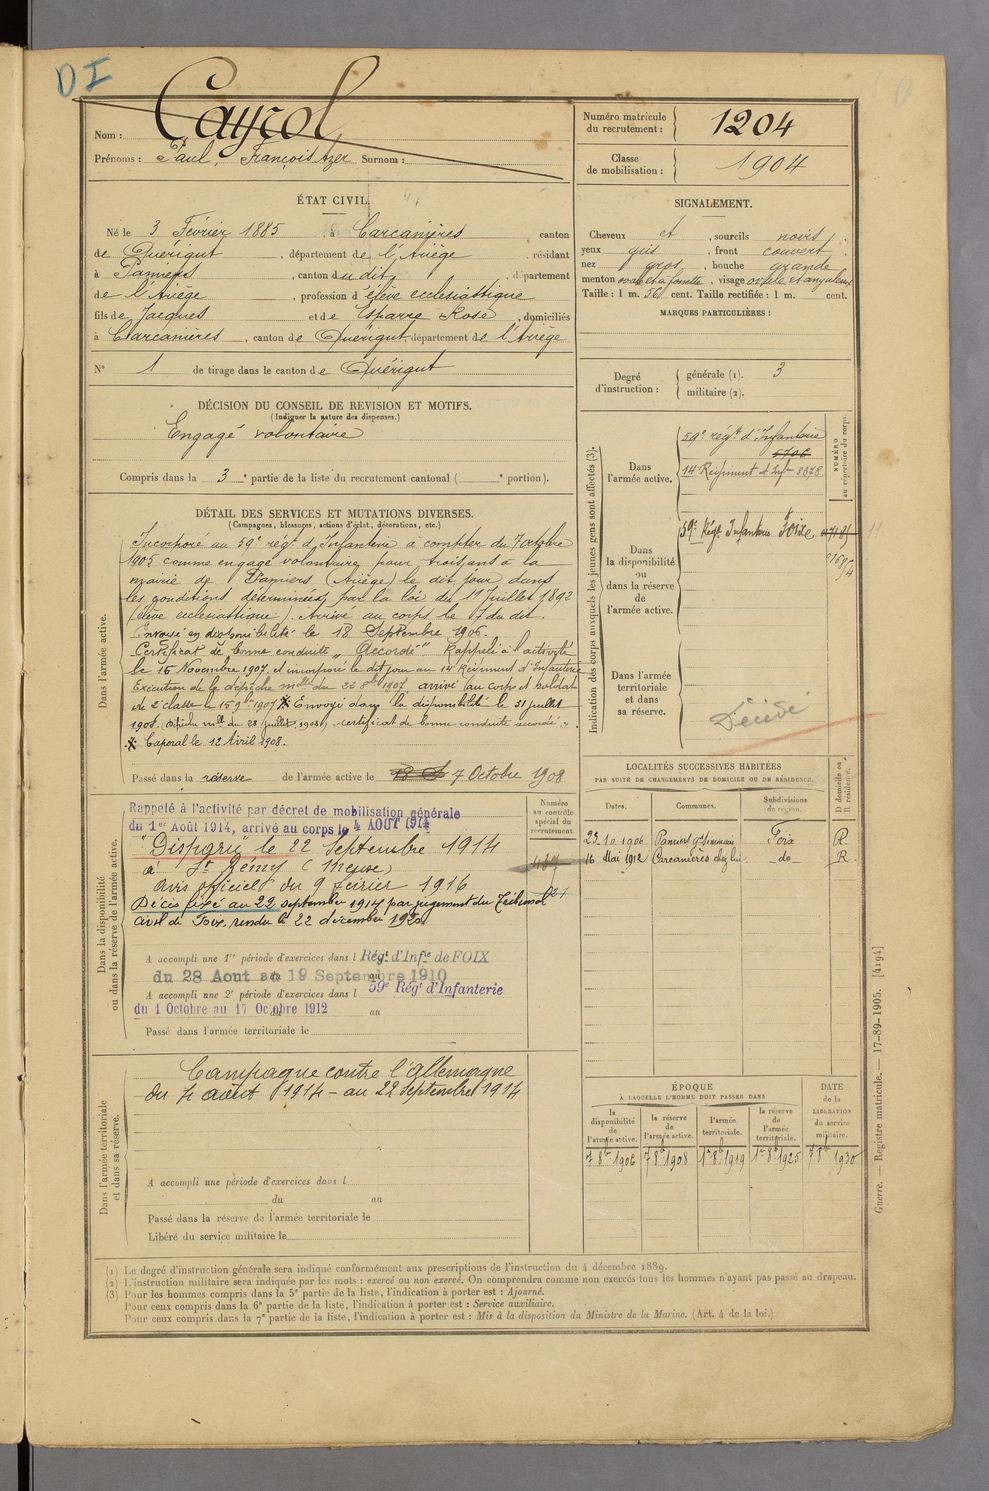 DI
Nom : Cayrol
Prénoms : Paul, François Azer Surnom :
Numéro matricule du recrutement : 1204
Classe de mobilisation : 1904
ÉTAT CIVIL.
Né le 3 Février 1885, à Carcanières, canton
de Quérigut, département de l'Ariège, résidant
à Pamiers, canton du dit, département
de l'Ariège, profession d'élève ecclésiastique
fils de Jacques et de Esparre Rose, domiciliés
à Carcanières, canton de Quérigut, département de l'Ariège
N° 1 de tirage dans le canton de Quérigut
SIGNALEMENT.
Cheveux et, sourcils noirs,
yeux gris, front couvert,
nez gros, bouche grande
menton rond et à fossette, visage ovale et anguleux
Taille : 1 m. 56 cent. Taille rectifiée : 1 m. cent.
MARQUES PARTICULIÈRES :
Degré d'instruction : générale (1). 3
militaire (2).
DÉCISION DU CONSEIL DE REVISION ET MOTIFS.
(Indiquer la nature des dispenses.)
Engagé volontaire
Compris dans la 3e partie de la liste du recrutement cantonal ( e portion).
DÉTAIL DES SERVICES ET MUTATIONS DIVERSES.
(Campagnes, blessures, actions d'éclat, décorations, etc.)
Dans l'armée active.
Incorporé au 59e régt d'Infanterie à compter du 7 octobre
1905 comme engagé volontaire pour trois ans à la
mairie de Pamiers (Ariège) le dit jour dans
les conditions déterminées par la loi du 11 Juillet 1892
(élève ecclésiastique). Arrivé au corps le 7 du dit.
Envoyé en disponibilité le 18 Septembre 1906.
Certificat de bonne conduite "Accordé" Rappelé à l'activité
le 15 Novembre 1907 et incorporé le dit jour au 14e Régiment d'Infanterie
Exécution de la dépêche mlle du 22 8bre 1907, arrivé au corps et soldat
de 2e classe le 15 9bre 1907 * Envoyé dans la disponibilité le 31 juillet
1908. (Dépêche mlle du 28 juillet 1908), certificat de bonne conduite accordé ".
* Caporal le 12 Avril 1908.
Passé dans la réserve de l'armée active le 7 Octobre 1908
Indication des corps auxquels les jeunes gens sont affectés (3).
NUMÉRO au répertoire du corps.
Dans l'armée active.
59e régt d'Infanterie
5706
14 Régiment d'Infie 8378
Dans la disponibilité ou dans la réserve de l'armée active.
59e Régt Infanterie Foix
Dans l'armée territoriale et dans sa réserve.
Décédé
Dans la disponibilité ou dans la réserve de l'armée active.
Numéro au contrôle spécial du recrutement.
Rappelé à l'activité par décret de mobilisation générale
du 1er Août 1914, arrivé au corps le 4 AOUT 1914
"Disparu" le 22 Septembre 1914
à St Rémy (Meuse)
Avis officiel du 9 février 1916
Décès fixé au 22 septembre 1914 par jugement du Tribunal
civil de Foix, rendu le 22 décembre 1920.
A accompli une 1re période d'exercices dans l Régt d'Infie de FOIX
du 28 Aout au 19 Septembre 1910
A accompli une 2e période d'exercices dans l 59e Régt d'Infanterie
du 1 Octobre au 17 Octobre 1912 au
Passé dans l'armée territoriale le
LOCALITÉS SUCCESSIVES HABITÉES
PAR SUITE DE CHANGEMENTS DE DOMICILE OU DE RÉSIDENCE.
D domicile ou R résidence.
Dates. Communes. Subdivisions de région.
23.10.1906 Pamiers gd Séminaire Foix R.
16 Mai 1912 Carcanières chez lui do R.
Dans l'armée territoriale et dans sa réserve.
Campagne contre l'Allemagne
du 4 août 1914 - au 22 septembre 1914
A accompli une période d'exercices dans l
du au
Passé dans la réserve de l'armée territoriale le
Libéré du service militaire le
ÉPOQUE
À LAQUELLE L'HOMME DOIT PASSER DANS
DATE de la LIBÉRATION du service militaire.
la disponibilité de l'armée active. la réserve de l'armée active. l'armée territoriale. la réserve de l'armée territoriale.
7 8bre 1906 7 8bre 1908 1er 8bre 1919 1er 8bre 1925 7 8bre 1930
Guerre. — Registre matricule. — 17-89-1905. [4194]
(1) Le degré d'instruction générale sera indiqué conformément aux prescriptions de l'instruction du 4 décembre 1889.
(2) L'instruction militaire sera indiquée par les mots : exercé ou non exercé. On comprendra comme non exercés tous les hommes n'ayant pas passé au drapeau.
(3) Pour les hommes compris dans la 5e partie de la liste, l'indication à porter est : Ajourné.
Pour ceux compris dans la 6e partie de la liste, l'indication à porter est : Service auxiliaire.
Pour ceux compris dans la 7e partie de la liste, l'indication à porter est : Mis à la disposition du Ministre de la Marine. (Art. 4 de la loi.)